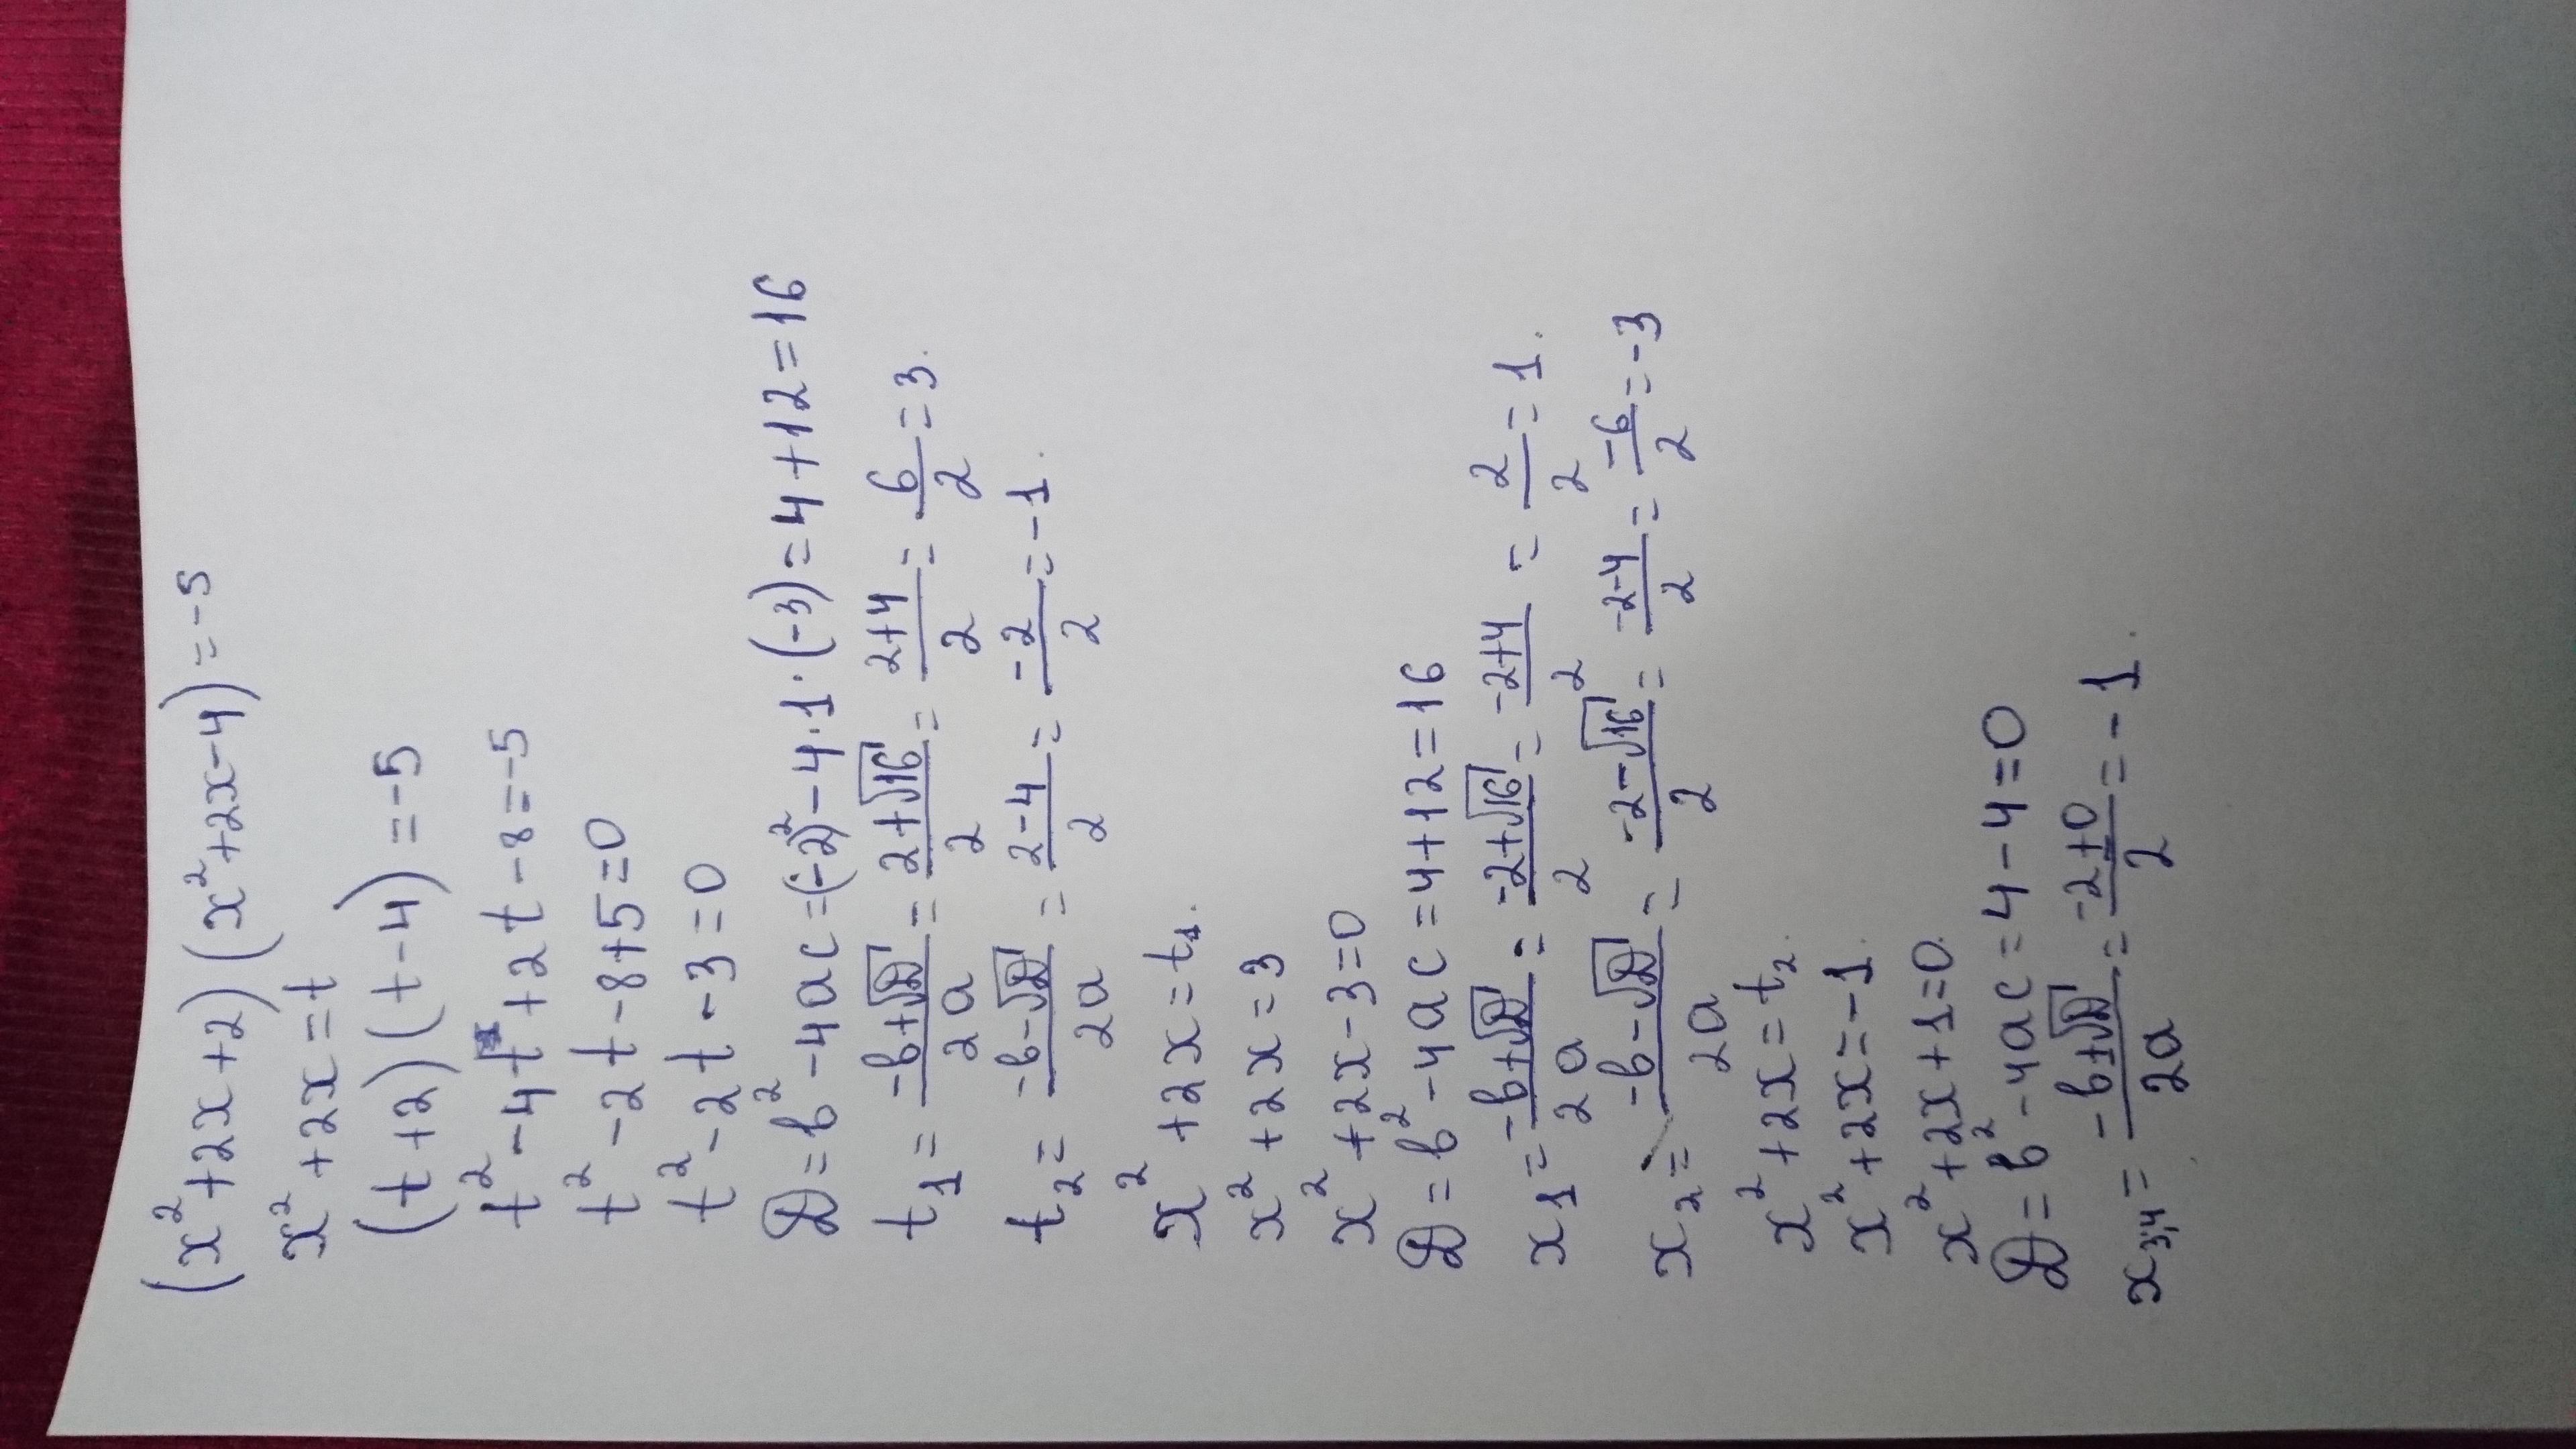 (x²+2x+2)(x²+2x-4)=-5
x²+2x=t
(t+2)(t-4)=-5
t²-4t+2t-8=-5
t²-2t-8+5=0
t²-2t-3=0
D=b²-4ac=(-2)²-4·1·(-3)=4+12=16
t₁=(-b+√D)/2a=(2+√16)/2=(2+4)/2=6/2=3.
t₂=(-b-√D)/2a=(2-4)/2=-2/2=-1.
x²+2x=t₁.
x²+2x=3
x²+2x-3=0
D=b²-4ac=4+12=16
x₁=(-b+√D)/2a=(-2+√16)/2=(-2+4)/2=2/2=1.
x₂=(-b-√D)/2a=(-2-√16)/2=(-2-4)/2=-6/2=-3
x²+2x=t₂.
x²+2x=-1.
x²+2x+1=0.
D=b²-4ac=4-4=0
x₃,₄=(-b±√D)/2a=(-2±0)/2=-1.